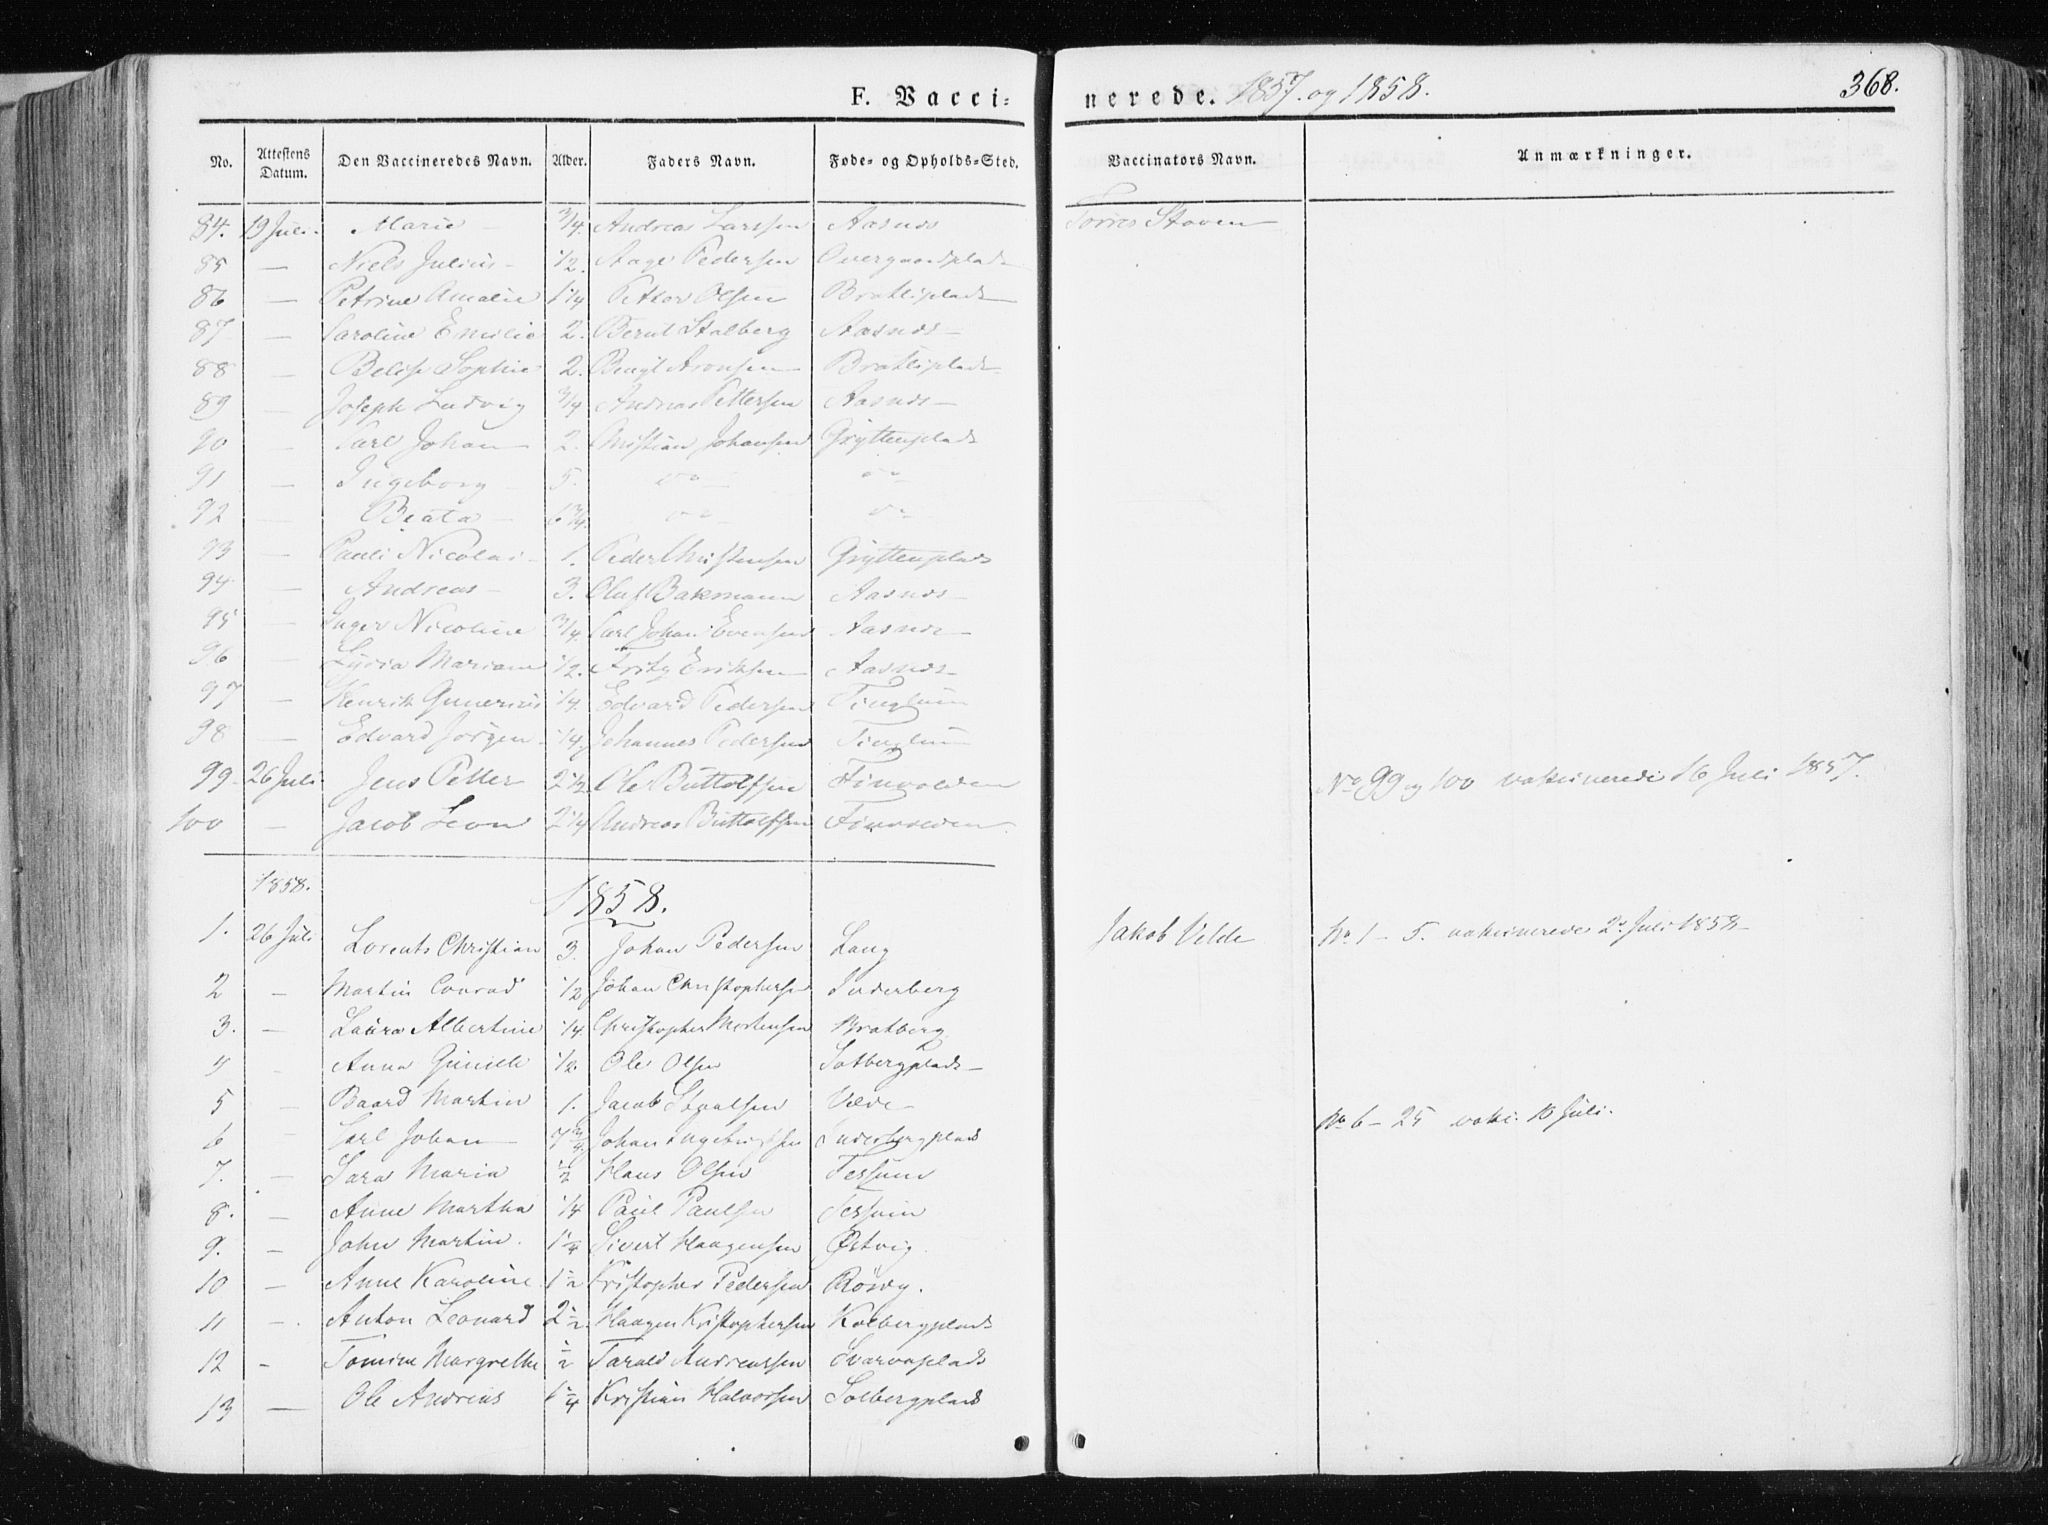 F. Vaccinerede. 1857. og 1858.
368.
No. Attestens Datum. Den Vaccineredes Navn. Alder. Faders Navn. Føde- og Opholds-Sted. Vaccinators Navn. Anmærkninger.
84. 19 Juli. Marie 3/4. Andreas Larssen Aasnes Torres Staven
85 — Niels Julius 1/2. Aage Pedersen Overgaardplads
86 — Petrine Amalie 1 1/4 Petter Olsen Bratliplads
87 — Caroline Emilie 2. Bernt Stalberg Aasnes
88 — Sophie 2. Bengt Aronsen Bratliplads
89 — Joseph Ludvig 3/4 Andreas Pettersen Aasnes
90 — Carl Johan 2. Christian Johansen Gryttenplads
91 — Ingeborg 5. do do
92 — Beata 6 3/4. do do
93 — Pauli Nicolai 1. Peder Christensen Gryttenplads
94 — Andreas 3. Oluf Bakmann Aasnes
95 — Inger Nicoline 3/4. Carl Johan Evensen Aasnes
96 — Lydia Mariane 1/2. Fritz Eriksen Aasnes
97 — Henrik Gunerius 1/4. Edvard Pedersen Tinglum
98 — Edvard Jørgen 1/4. Johannes Pedersen Tinglum
99 26 Juli Jens Petter 2 1/2 Ole Buttolfsen Finvolden No 99 og 100 vaksinerede 16 Juli 1857.
100 — Jacob Leon 2 1/4 Andreas Buttolfsen Finvolden
1858.
1858.
1. 26 Juli Lorents Christian 3. Johan Pedersen Lang Jakob Velde No 1 — 5. vaksinerede 2 Juli 1858
2 — Martin Conrad 1/2 Johan Christophersen Inderberg
3. — Laura Albertine 1/4. Christopher Mortensen Bratberg
4 Anna 1/2. Ole Olsen Solbergplads
5 — Baard Martin 1. Jacob Velde
6 — Carl Johan 7 3/4 Johan Ingebrigtsen Inderbergplads No 6 — 25 vaksi. 10 Juli.
7. — Sara Maria 1/2 Hans Olsen Tessum
8. — Anne Martha 1/4 Paul Paulsen Tessum
9. — John Martin. 1 1/4 Sivert Haagensen Østvig.
10 — Anne Karoline 1 1/2 Kristopher Pedersen
11 — Anton Leonard 2 1/2 Haagen Kristophersen Kolbergplads
12 — Tomine Margrethe 1/2 Tarald Andreassen Svarvaplads
13 — Ole Andreas 1 1/4 Kristian Halvorsen Solbergplads